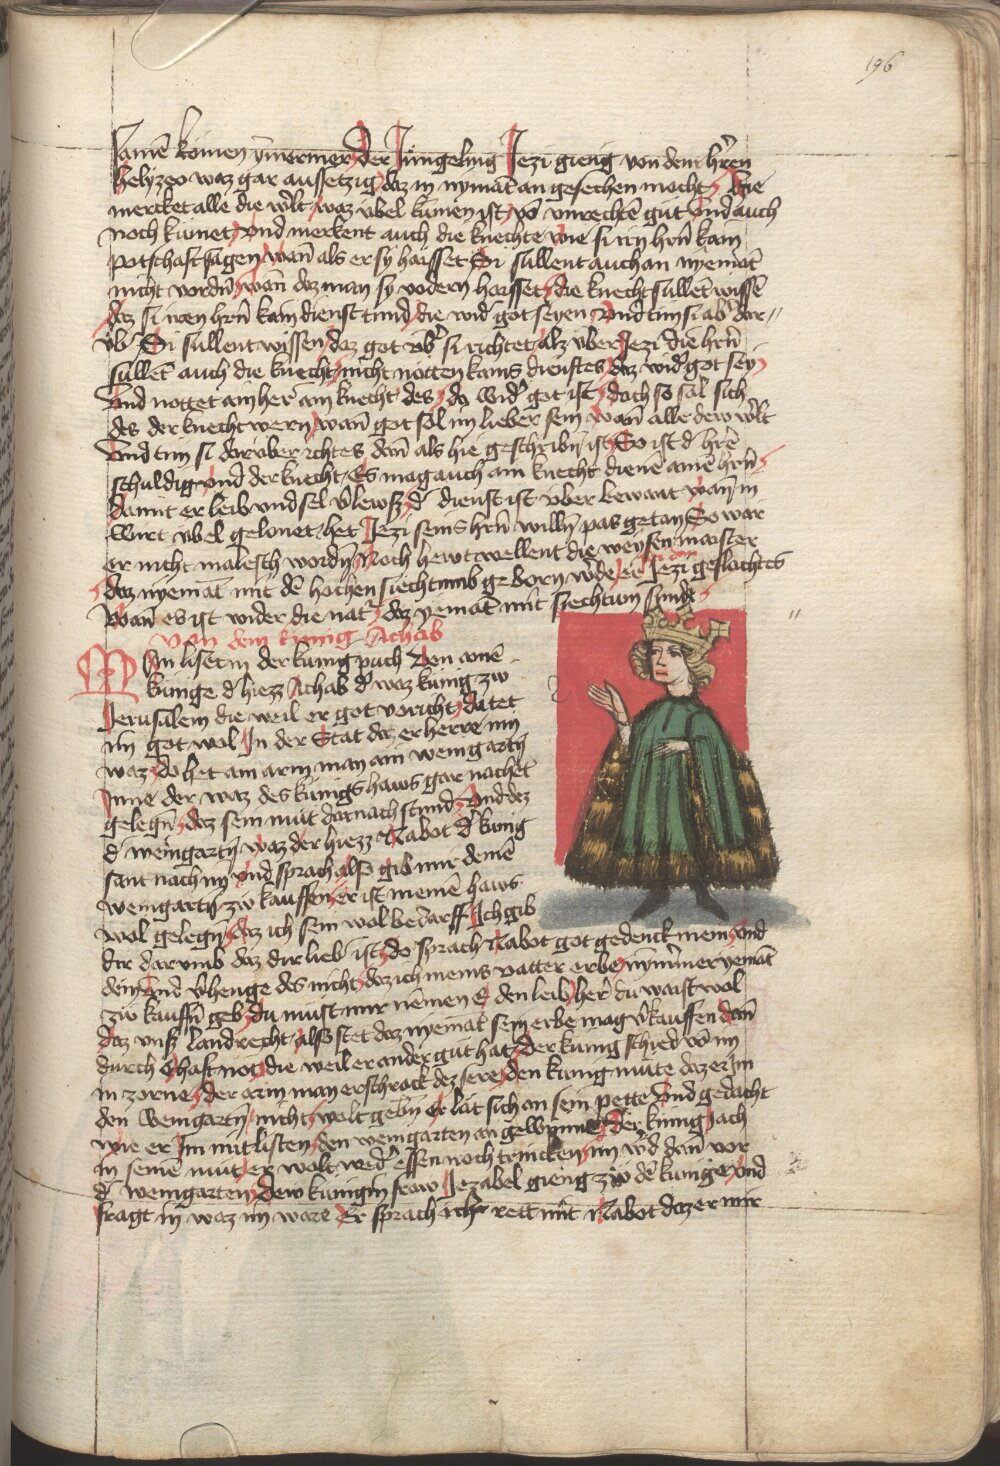 196
samē komen ym̄ermer der Jungeling Jezi gieng von dem hr̄en
helyzeo waz gar aussetzig daz in nymāt an gesechen mocht Hie
mercket alle die w̄lt waz vbel kumen ist vō vnrechtē gut Vnd auch
noch kumet vnd merkent auch die knechte wie si irn hrn̄ kain
potschaft sagen wan̄ als er sy haisset Si sullent auch an nyemāt
nicht vordn̄ wan̄ daz man sy vodern haisset die knecht sullēt wissē
daz si iren hrn̄ kain dienst tund die wid͛ got seyen Vnd tun si ab͛ dar
vb͛ Si sullent wissen daz got vb͛ si richtet alz vber Jezi die hrn̄
sullēt auch die knecht nicht nötten kains dienstes daz wid͛ got sey
Vnd nottet ain her ain knecht des do wid͛ got ist doch so sol sich
des der knecht wern wan̄ got sol im lieber sein wan̄ alle dew w̄lt
Vnd tun si darüber ichtes dan̄ als hie geschribn̄ ist So ist d͛ hr̄e
schuldig vnd der knecht Es mag auch ain knecht dienē ainē hrn̄
damit er leib vnd sel v͛lewst d͛ dienst ist vber bewant wan̄ in
wirt vbel gelonet het Jezi seins hrn̄ willn̄ pas getan So war
er nicht malesch wordn̄ Noch hewt wellent die weysen maister
daz nyemāt mit dē hochen siechtumb geborn w̄de Jezi geslächtes
wan̄ es ist wider die nat͛ daz yemāt mit siechtum sunde
Von dem kunig Achab
Man liset in der kunig puch Von ainē
kunige d͛ hiezz Achab d͛ waz kunig zw
Jerusalem die weil er got voricht da tet
im got wol In der Stat daz er herre inn
waz do het ain arm man ain weingartn̄
Inne der waz des kunigs haws gar nachet
gelegn̄ daz sein mut darnach stund Vnd dez
d͛ weingartn̄ waz der hiezz Nabot d͛ kunig
sant nach im vnd sprach also gib mir deinē
weingartn̄ zw kauffen er ist meinē haws
wol gelegn̄ daz ich sein wol bedarff Ich gib
dir darumb daz dir lieb ist do sprach Nabot got gedenck mein vnd
dein vnd v͛henge des nicht daz ich meins vatter erbe nym̄er yemāt
zw kauffn̄ geb du must mir nēmen E den leib her͛ du waist wol
daz vns͛ landrecht also stet daz nyemāt sein erbe mag v͛kauffen dan̄
durch Ehaft not die weil er ander gut hat der kunig schied vō im
in zorne der arm man erschrack dez sere den kunig mute daz er im
den weingartn̄ nicht wolt gebn̄ Er lait sich an sein pette Vnd gedacht
wie er Im mit listen den weingarten an gewunne Der kunig iach
in seinē mut er wolt wed͛ essen noch trincken im w̄d dan̄ vor
d͛ weingarten dew kunigin fraw Jezabel gieng zw dē kunige vnd
fragt in waz im ware Er sprach ich rett mit Nabot daz er mir